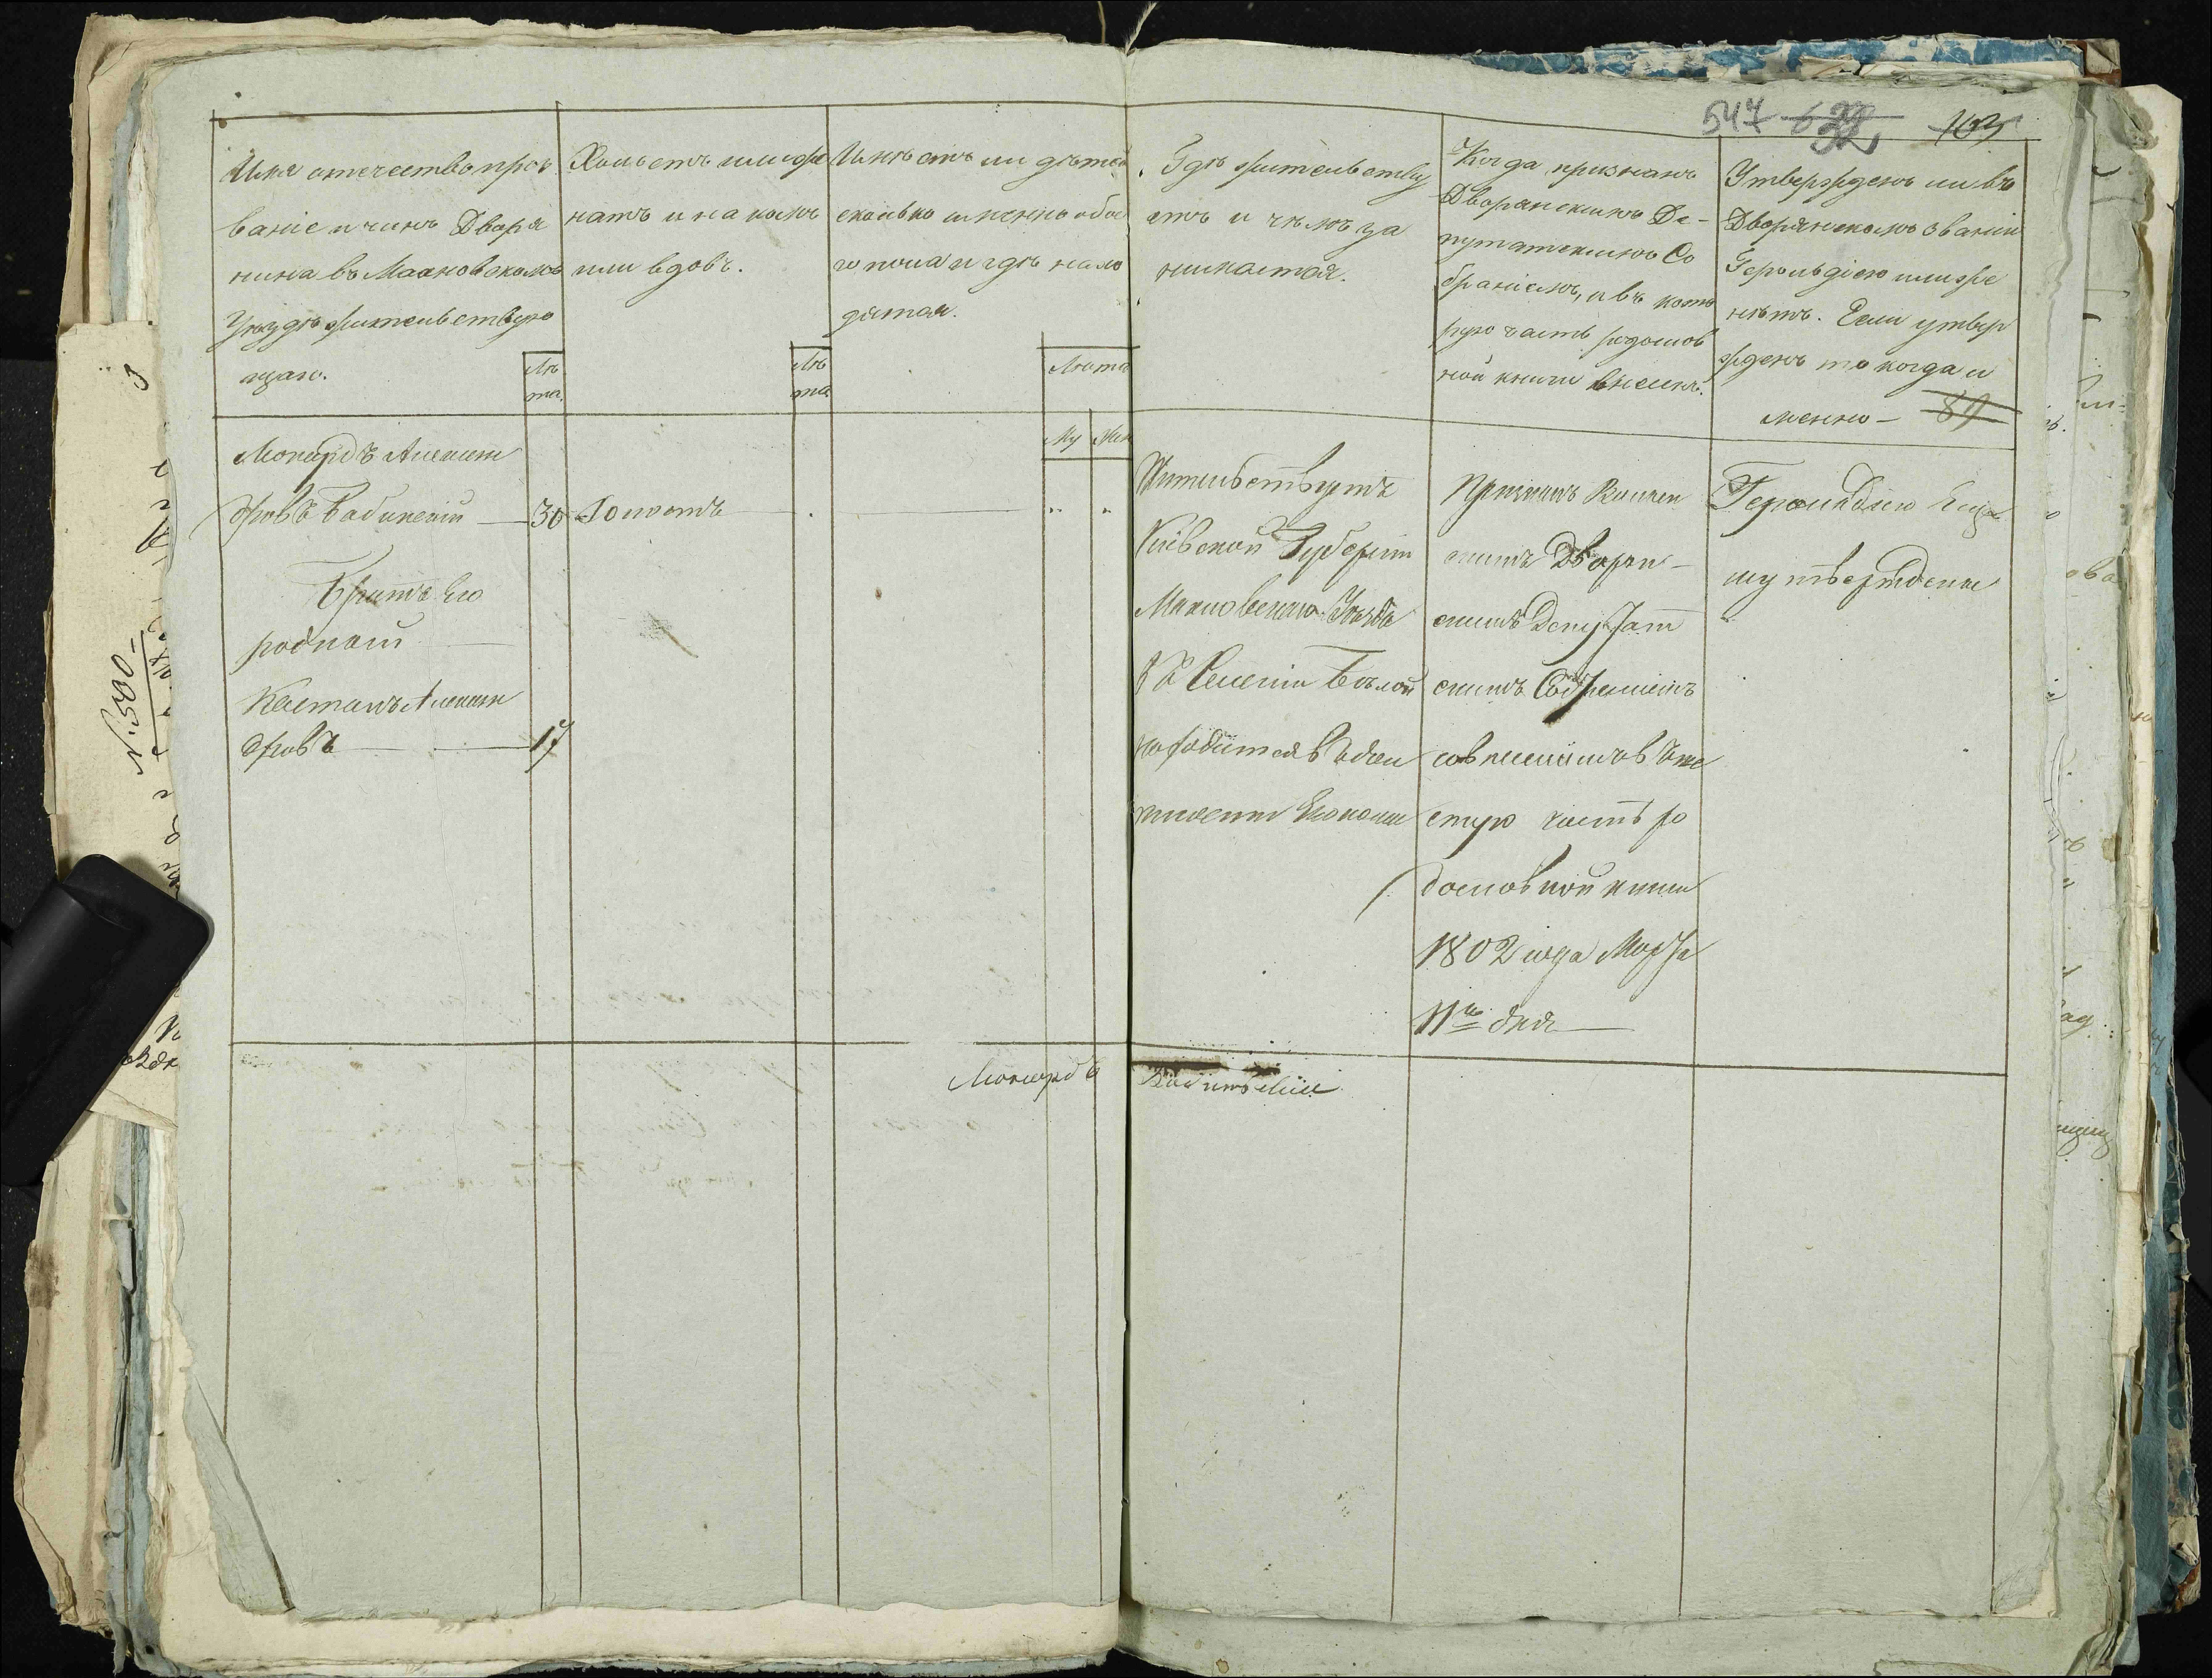 547 622 163
Имя отечество прозъ
ваніе и чинъ Дворя
нина въ Махновскомъ
Уѣздѣ жительствую
щаго.
Лѣ
та.
Холъстъ или же
натъ и на комъ
или вдовъ.
Лѣ
та
Имѣетъ ли дѣтей
сколько именно обое
го пола и гдѣ нахо
дятся.
Лѣта
Му Жен
Гдѣ жительству
етъ и чѣмъ за
нимается.
Когда признанъ
Дворянскимъ Де-
путатскимъ Со
браніемъ, и въ кото
рую часть родослов
ной книги внесенъ.
Утвержденъ ли въ
Дворянскомъ званіи
Герольдіею или же
нѣтъ. Если утвер
жденъ то когда и
менно - 89
Алексан
дровъ Бабинскій 30 Холостъ
Братъ его
родной
Каетанъ Алексан
дровъ 17
Жительствуетъ
Кіевской Губерніи
Махновскаго Уѣзда
въ Селеніи Бѣлой
находится въ
Економіи
Признанъ
скимъ Дворян-
скимъ Депутат
скимъ Собраніемъ
совнесеніемъ въ ше
стую часть ро
дословной книги
1802 года Марта
11го дня
Герольдіею еще
не утвержденъ
Бабинскій
N. 580